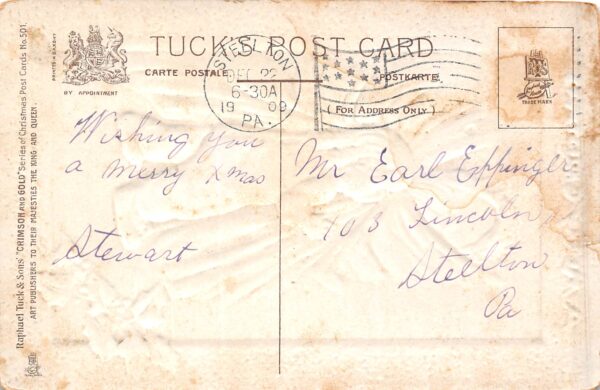 TUCK'S POST CARD
CARTE POSTALE
POSTKARTE
( FOR ADDRESS ONLY )
BY APPOINTMENT
STEELTON
DEC 22
6-30A
1909
PA.
TRADE MARK
Wishing you
a merry Xmas
Stewart
Mr Earl Eppinger
103 Lincoln
Steelton
Pa
Raphael Tuck & Sons' "CRIMSON AND GOLD" Series of Christmas Post Cards No. 501.
ART PUBLISHERS TO THEIR MAJESTIES THE KING AND QUEEN.